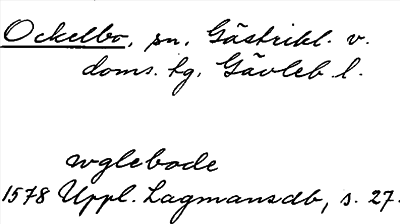 Ockelbo, sn, Gästrikl. v.
doms. tg. Gävleb l.
wglebode
1578 Uppl. Lagmansdb, s. 27.